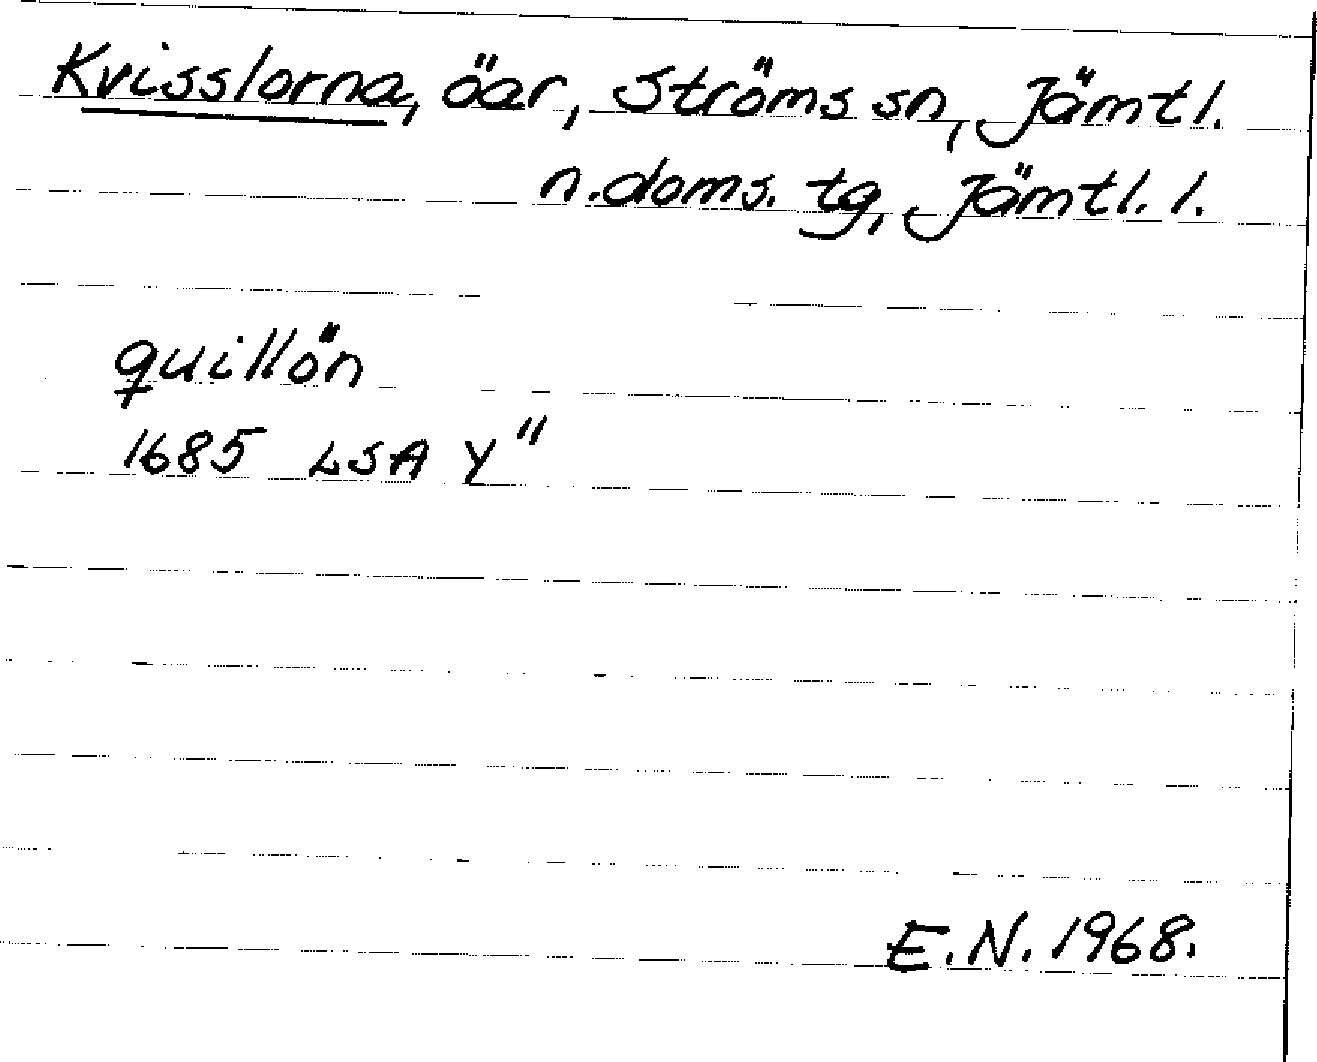 Kvisslorna, öar, Ströms sn, Jämtl.
n. doms. tg, Jämtl. l.
quillön
1685 LSA Y"
E.N. 1968.